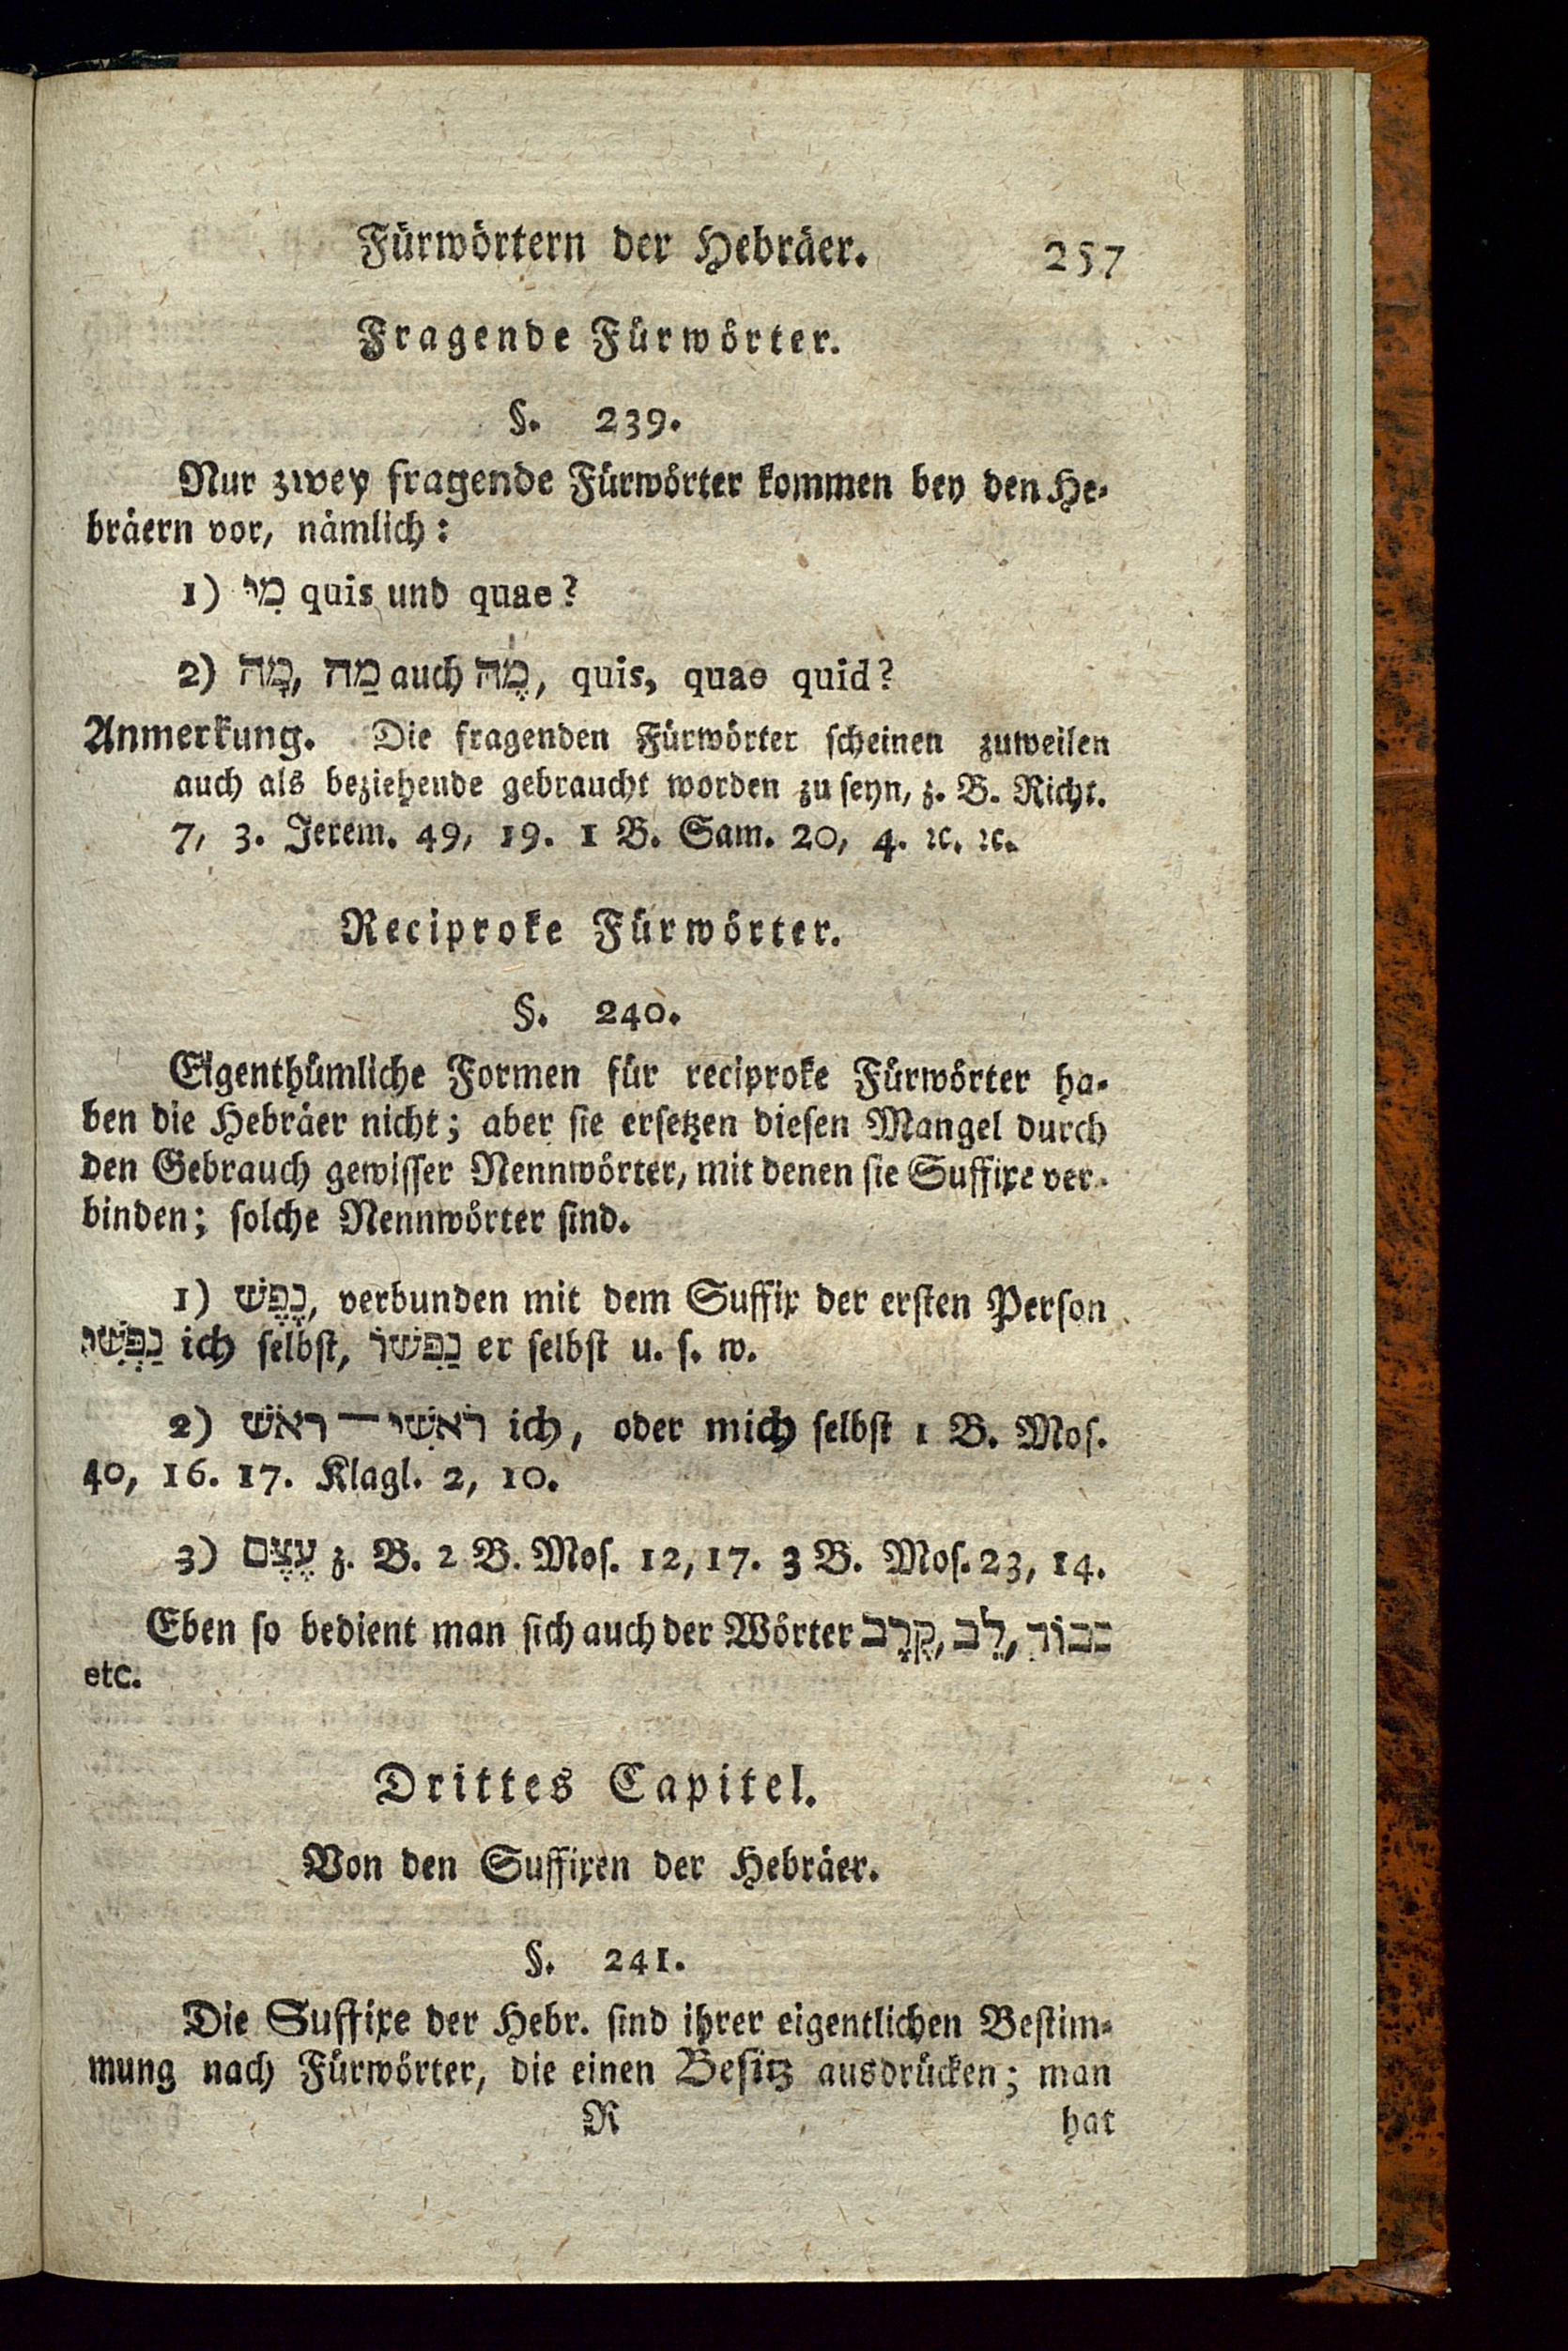 Fürwörtern der Hebräer. 257
Fragende Fürwörter.
§. 239.
Nur zwey fragende Fürwörter kommen bey den He-
bräern vor, nämlich:
1) מִי quis und quae?
2) מָה, מַה auch מֶה, quis, quae quid?
Anmerkung. Die fragenden Fürwörter scheinen zuweilen
auch als beziehende gebraucht worden zu seyn, z. B. Richt.
7, 3. Jerem. 49, 19. 1 B. Sam. 20, 4. ꝛc. ꝛc.
Reciproke Fürwörter.
§. 240.
Eigenthümliche Formen für reciproke Fürwörter ha-
ben die Hebräer nicht; aber sie ersetzen diesen Mangel durch
den Gebrauch gewisser Nennwörter, mit denen sie Suffixe ver-
binden; solche Nennwörter sind.
1) נֶפֶשׁ, verbunden mit dem Suffix der ersten Person
נַפְשִׁי ich selbst, נַפְשׁוֹ er selbst u. s. w.
2) ראֹשׁ — רֹאשִׁי ich, oder mich selbst 1 B. Mos.
40, 16. 17. Klagl. 2, 10.
3) עֶצֶם z. B. 2 B. Mos. 12, 17. 3 B. Mos. 23, 14.
Eben so bedient man sich auch der Wörter קֶרֶב, לֵב,
etc.
Drittes Capitel.
Von den Suffixen der Hebräer.
§. 241.
Die Suffixe der Hebr. sind ihrer eigentlichen Bestim-
mung nach Fürwörter, die einen Besitz ausdrücken; man
R hat